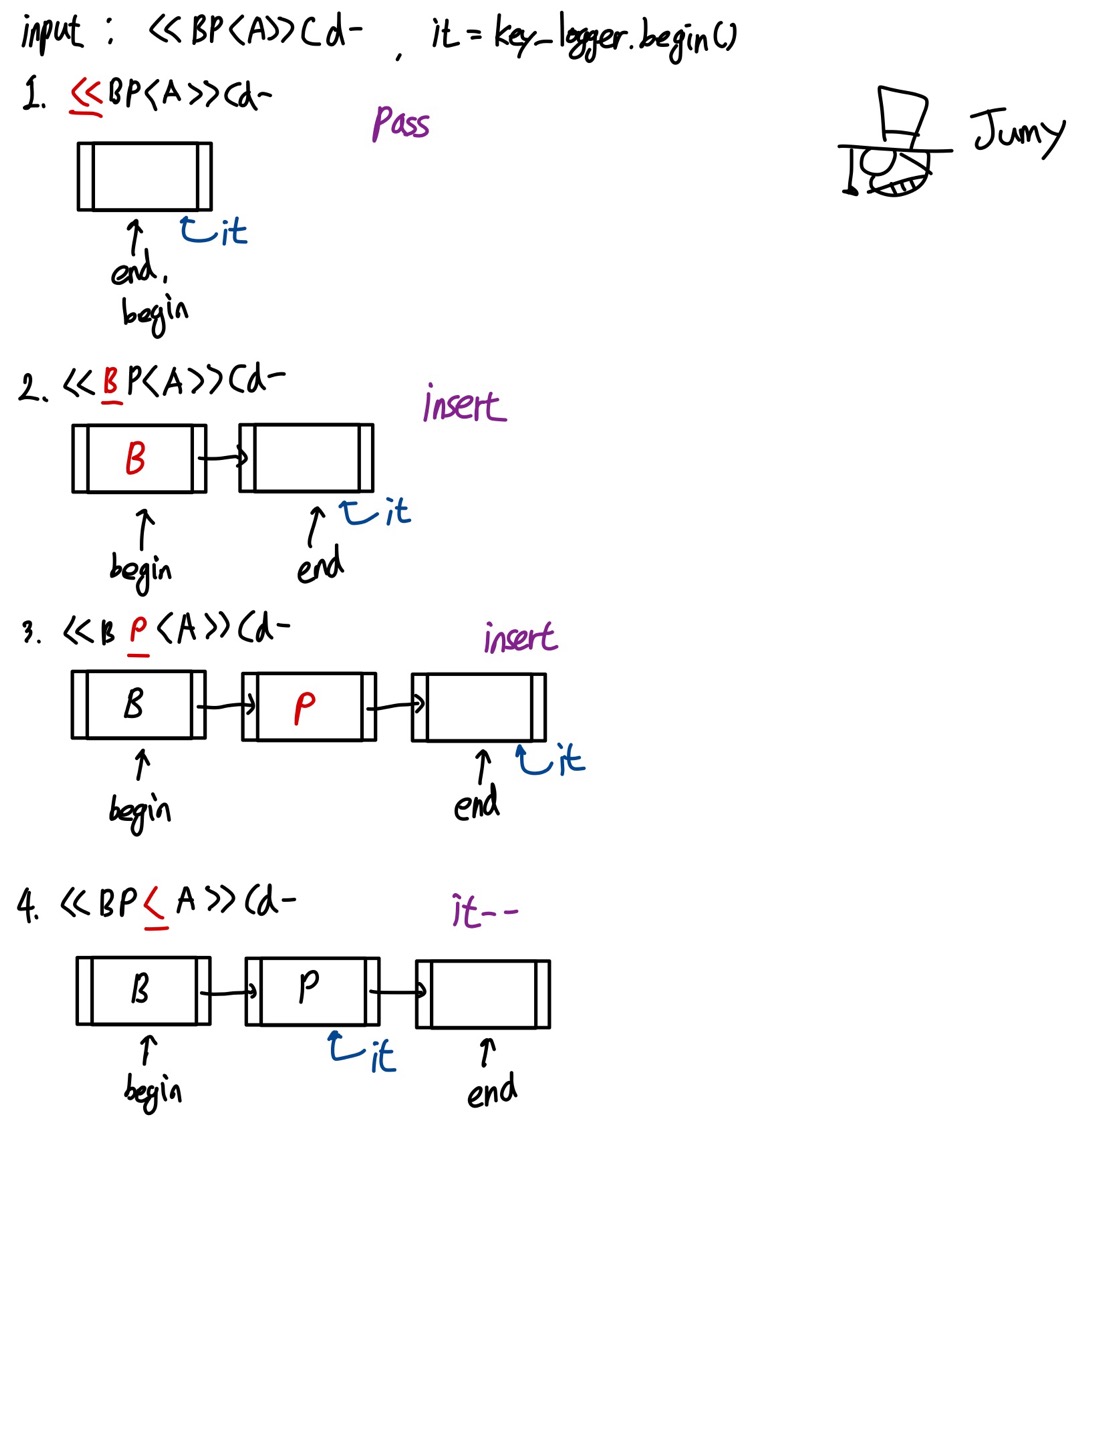 input : <<BP<A>>Cd- , it = key_logger.begin()
1. <<BP<A>>Cd-
pass
Jumy
it
end,
begin
2. <<BP<A>>Cd-
insert
B
it
begin
end
3. <<BP<A>>Cd-
insert
B
P
it
begin
end
4. <<BP<A>>Cd-
it--
B
P
it
begin
end